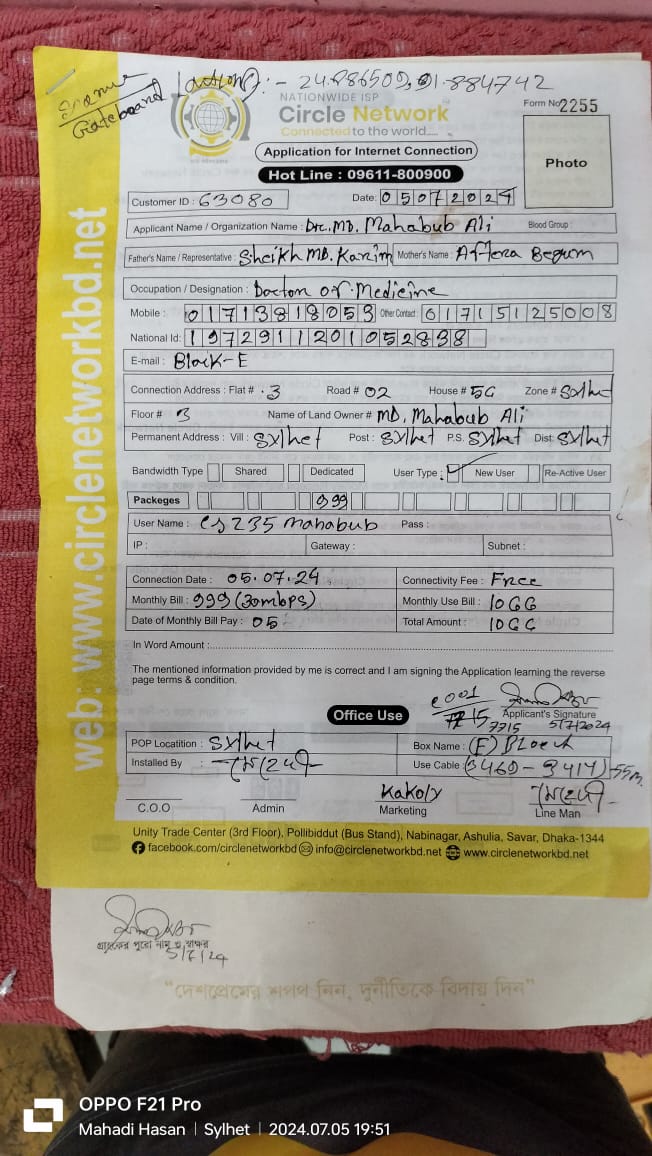 Location :- 24.886509, 91.884742
Gateboard
NATIONWIDE ISP
Circle Network
Connected to the world.....
Form No 2255
Application for Internet Connection
Hot Line : 09611-800900
Photo
Customer ID : 63080
Date: 05072024
Applicant Name / Organization Name : Dr. MD. Mahabub Ali Blood Group :
Father's Name / Representative : Sheikh MD. Karim Mother's Name : Afteza Begum
Occupation / Designation : Doctor of Medicine
Mobile : 01713818053 Other Contact : 01715125008
National Id: 1972911201052898
E-mail : Block-E
Connection Address : Flat # 3 Road # 02 House # 5G Zone # Sylhet
Floor # 3 Name of Land Owner # MD. Mahabub Ali
Permanent Address : Vill : Sylhet Post : Sylhet P.S. Sylhet Dist: Sylhet
Bandwidth Type Shared Dedicated User Type : New User Re-Active User
Packeges 999
User Name : cs235 mahabub Pass :
IP : Gateway : Subnet :
Connection Date : 05.07.24 Connectivity Fee : Free
Monthly Bill : 999 (30mbps) Monthly Use Bill :
Date of Monthly Bill Pay : 05 Total Amount :
In Word Amount :
The mentioned information provided by me is correct and I am signing the Application learning the reverse
page terms & condition.
Applicant's Signature
7715 5/7/2024
Office Use
POP Locatition : Sylhet Box Name : (E) Block
Installed By : Use Cable (3460 - 3417) 55m.
Kakoly
C.O.O Admin Marketing Line Man
Unity Trade Center (3rd Floor), Pollibiddut (Bus Stand), Nabinagar, Ashulia, Savar, Dhaka-1344
facebook.com/circlenetworkbd info@circlenetworkbd.net www.circlenetworkbd.net
web: www.circlenetworkbd.net
গ্রাহকের পুরো নাম ও স্বাক্ষর
5/7/24
“দেশপ্রেমের শপথ নিন, দুর্নীতিকে বিদায় দিন”
OPPO F21 Pro
Mahadi Hasan | Sylhet | 2024.07.05 19:51